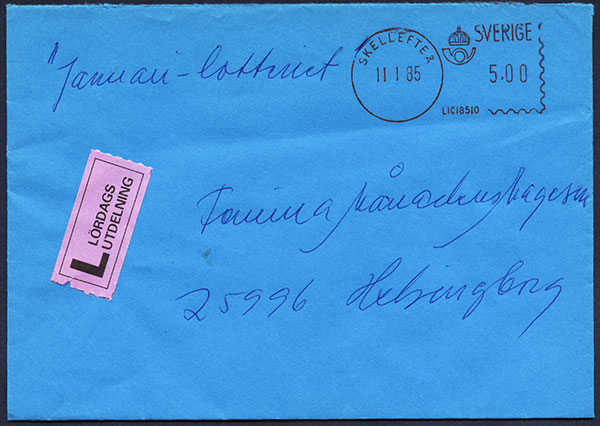 "Januari-lotteriet
SKELLEFTEÅ
11 1 85
SVERIGE
5.00
LIC18510
L LÖRDAGS
UTDELNING
Femina Månadens Magasin
25996 Helsingborg